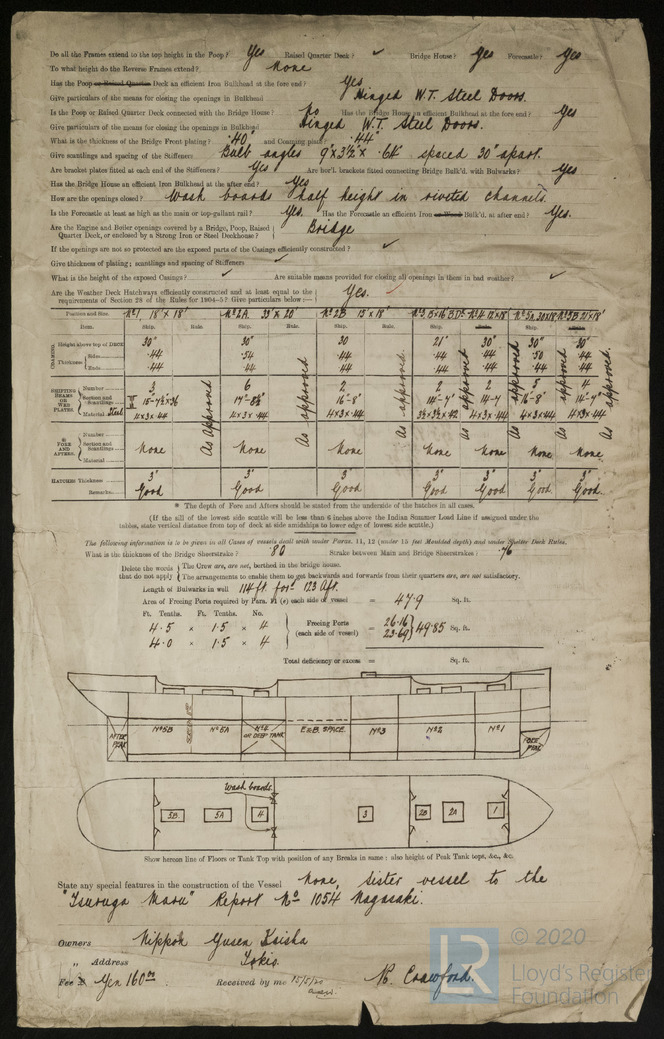 Do all the Frames extend to the top height in the Poop? Yes Raised Quarter Deck? ✓ Bridge House? Yes Forecastle? Yes
To what height do the Reverse Frames extend? None
Has the Poop or Raised Quarter Deck an efficient Iron Bulkhead at the fore end? Yes
Give particulars of the means for closing the openings in Bulkhead Hinged W.T. Steel Doors.
Is the Poop or Raised Quarter Deck connected with the Bridge House? No Has the Bridge House an efficient Bulkhead at the fore end? Yes
Give particulars of the means for closing the openings in Bulkhead Hinged W.T. Steel Doors.
What is the thickness of the Bridge Front plating? .40" and Coaming plate? .44"
Give scantlings and spacing of the Stiffeners Bulb angles 9" x 3½" x .64" spaced 30" apart.
Are bracket plates fitted at each end of the Stiffeners? Yes Are hor'l. brackets fitted connecting Bridge Bulk'd. with Bulwarks? Yes
Has the Bridge House an efficient Iron Bulkhead at the after end? Yes
How are the openings closed? Wash boards half height in riveted channels.
Is the Forecastle at least as high as the main or top-gallant rail? Yes. Has the Forecastle an efficient Iron or Wood Bulk'd. at after end? Yes.
Are the Engine and Boiler openings covered by a Bridge, Poop, Raised
Quarter Deck, or enclosed by a Strong Iron or Steel Deckhouse? Bridge
If the openings are not so protected are the exposed parts of the Casings efficiently constructed? ✓
Give thickness of plating; scantlings and spacing of Stiffeners ✓
What is the height of the exposed Casings? ✓ Are suitable means provided for closing all openings in them in bad weather? ✓
Are the Weather Deck Hatchways efficiently constructed and at least equal to the
requirements of Section 28 of the Rules for 1904-5? Give particulars below:— Yes.
Position and Size. No 1 18' x 18' No 2A 33' x 20' No 2B 15' x 18' No 4 12' x 18' No 5A 20 x 18' No 5B 21' x 18'
Item. Ship. Rule. Ship. Rule. Ship. Rule. Ship. Rule. Ship. Ship. Ship.
COAMING. Height above top of DECK 30" 30" 30 21" 30" 30" 30"
Thickness Sides .44 .54 44 44 44 50 44
Ends .44 44 44 44 44 44 44
SHIFTING BEAMS OR WEB PLATES. Number 3 6 2 2 2 5 4
Section and Scantlings 17'-8½" 16'-8' 14'-7' 14-7 16'-8' 14'-7"
Material Steel 4x3x.44 4x3x.44 4x3x.44 3½x3½x.42 4x3x.44 4x3x.44 4x3x.44
As approved As approved As approved As approved As approved As approved As approved
* FORE AND AFTERS. Number
Section and Scantlings None None None None None None None
Material
HATCHES Thickness 3" 3" 3" 3" 3" 3" 3"
Remarks. Good Good Good Good Good Good. Good.
* The depth of Fore and Afters should be stated from the underside of the hatches in all cases.
(If the sill of the lowest side scuttle will be less than 6 inches above the Indian Summer Load Line if assigned under the
tables, state vertical distance from top of deck at side amidships to lower edge of lowest side scuttle.)
The following information is to be given in all Cases of vessels dealt with under Paras. 11, 12 (under 15 feet Moulded depth) and under Shelter Deck Rules.
What is the thickness of the Bridge Sheerstrake? .80 Strake between Main and Bridge Sheerstrakes? .76
Delete the words that do not apply
The Crew are, are not, berthed in the bridge house.
The arrangements to enable them to get backwards and forwards from their quarters are, are not satisfactory.
Length of Bulwarks in well 114 ft. for'd 123 Aft.
Area of Freeing Ports required by Para. 11 (e) each side of vessel = 47.9 Sq. ft.
Ft. Tenths. Ft. Tenths. No.
4.5 x 1.5 x 4
4.0 x 1.5 x 4
Freeing Ports (each side of vessel) = 26.16 23.69 49.85 Sq. ft.
Total deficiency or excess = Sq. ft.
AFTER PEAK No 5B No 5A No 4 OR DEEP TANK E&B. SPACE No 3 No 2 No 1 FORE PEAK
Wash boards
5B 5A 4 3 2B 2A 1
Show hereon line of Floors or Tank Top with position of any Breaks in same: also height of Peak Tank tops, &c., &c.
State any special features in the construction of the Vessel None, sister vessel to the
"Tsuruga Maru" Report No 1054 Nagasaki.
Owners Nippon Yusen Kaisha
" Address Tokio.
Fee £ Yen 160.00 Received by me 15/5/20 N. Crawford.
LR © 2020
Lloyd's Register
Foundation